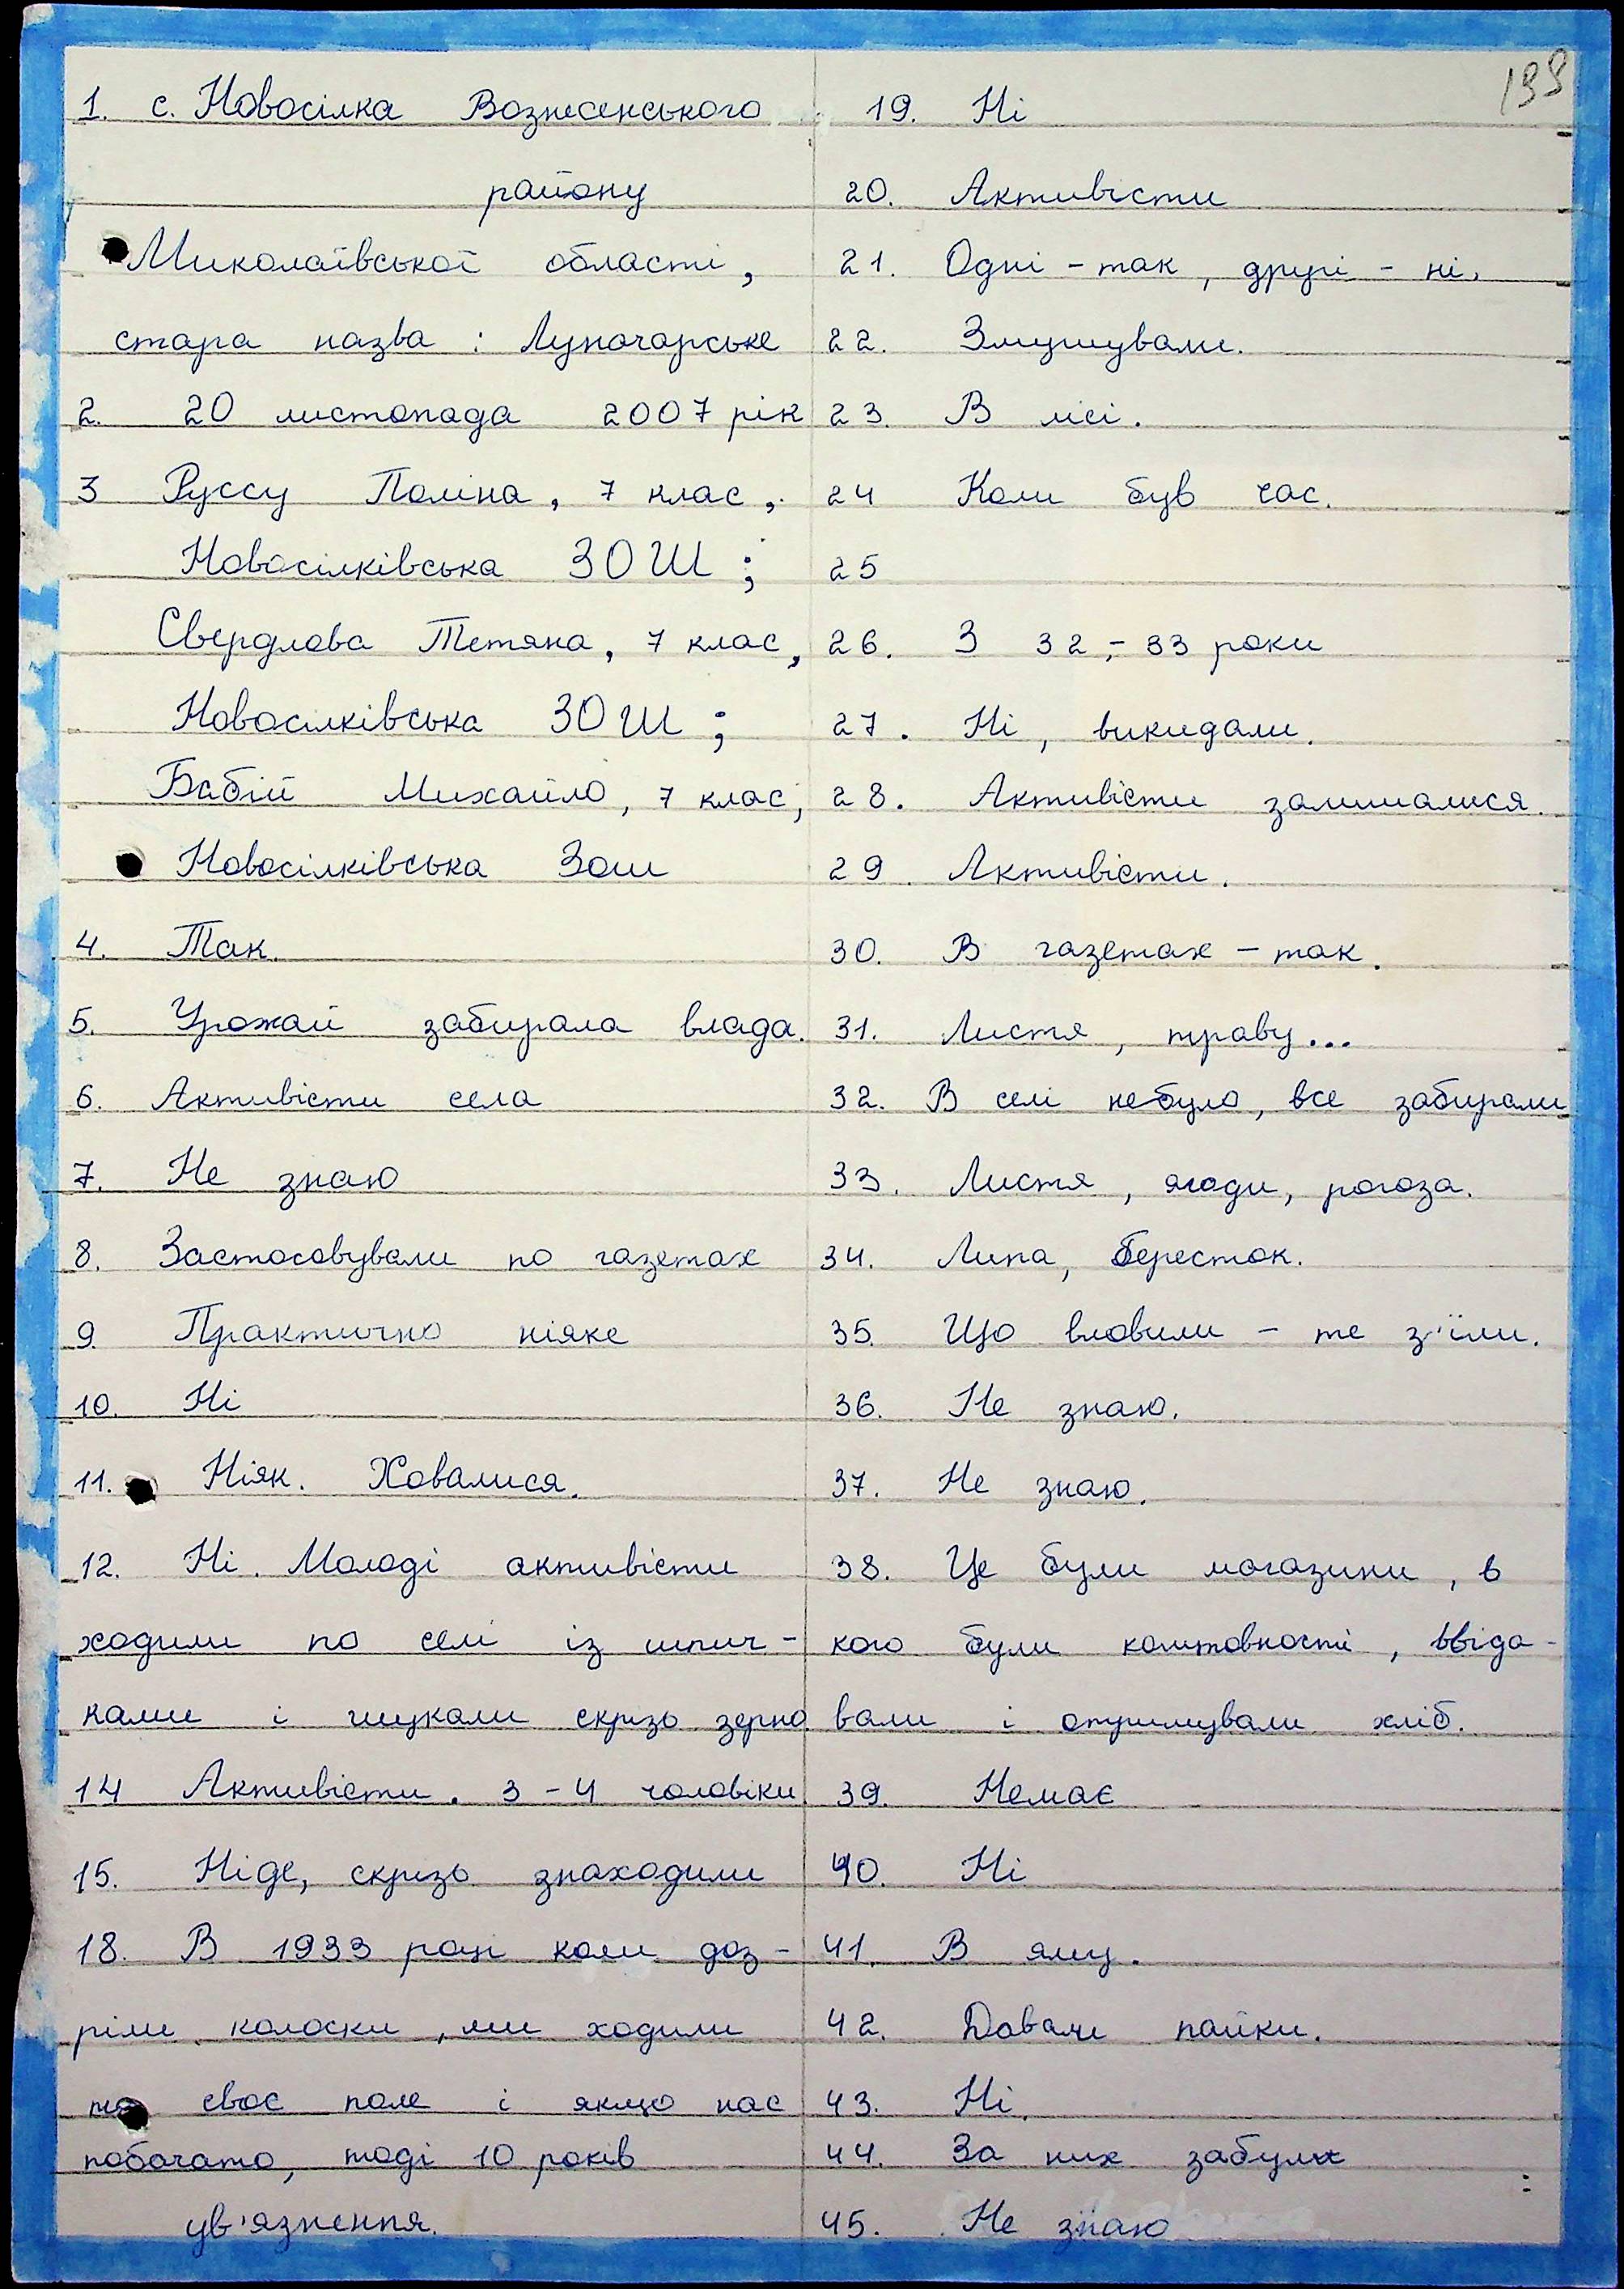 199
1. с. Новосілка Вознесенського
району
Миколаївської області,
стара назва : Луначарське
2. 20 листопада 2007 рік
3 Руссу Поліна, 7 клас,
Новосілківська ЗОШ ;
Свердлова Тетяна, 7 клас,
Новосілківська ЗОШ ;
Бабій Михайло, 7 клас,
Новосілківська Зош
4. Так.
5. Урожай забирала влада.
6. Активісти села
7. Не знаю
8. Застосовували по газетах
9. Практично ніяке
10. Ні
11. Ніяк. Ховалися.
12. Ні. Молоді активісти
ходили по селі із шпич-
ками і шукали скрізь зерно
14 Активісти. 3 - 4 чоловіки
15. Ніде, скрізь знаходили
18. В 1933 році коли доз-
ріли колоски, ми ходили
на своє поле і якщо нас
побачать, тоді 10 років
ув'язнення.
19. Ні
20. Активісти
21. Одні - так, другі - ні.
22. Змушували.
23. В лісі.
24 Коли був час.
25
26. З 32 - 33 роки
27. Ні, викидали.
28. Активісти залишалися.
29. Активісти.
30. В газетах - так.
31. Листя, траву...
32. В селі небуло, все забирали
33. Листя, ягоди, рогоза.
34. Липа, бересток.
35. Що вловили - те з'їли.
36. Не знаю.
37. Не знаю.
38. Це були магазини, в
кого були коштовності, ввіда-
вали і отримували хліб.
39. Немає
40. Ні
41. В яму.
42. Давали пайки.
43. Ні.
44. За них забули
45. Не знаю